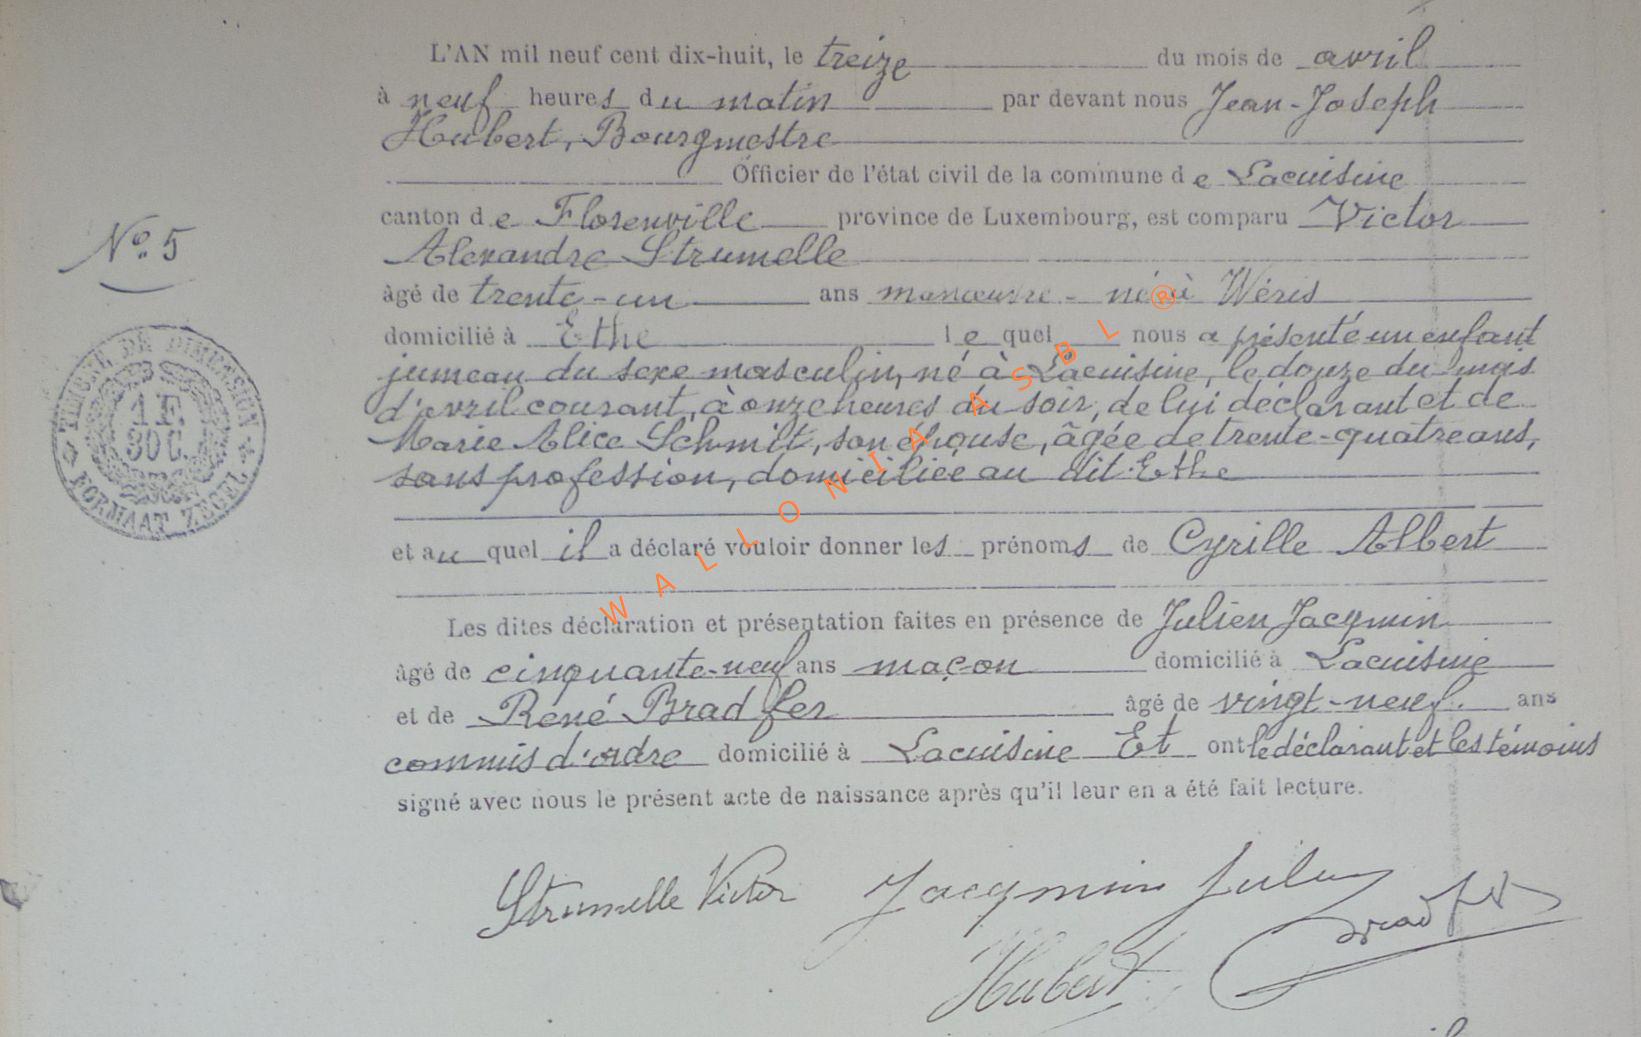 L'AN mil neuf cent dix-huit, le treize du mois de avril
à neuf heures du matin par devant nous Jean-Joseph
Hubert, Bourgmestre
Officier de l'état civil de la commune de Lacuisine
canton de Florenville province de Luxembourg, est comparu Victor
Alexandre Strumelle
N° 5
âgé de trente-un ans manœuvre - né à Wéris
domicilié à Ethe lequel nous a présenté un enfant
jumeau du sexe masculin, né à Lacuisine, le douze du mois
d'avril courant, à onze heures du soir, de lui déclarant et de
Marie Alice Schmit, son épouse, âgée de trente-quatre ans,
sans profession, domiciliée au dit Ethe
TIMBRE DE DIMENSION
1 F.
30 C.
FORMAAT ZEGEL
et au quel il a déclaré vouloir donner les prénoms de Cyrille Albert
Les dites déclaration et présentation faites en présence de Julien Jacqmin
âgé de cinquante-neuf ans maçon domicilié à Lacuisine
et de René Bradfer âgé de vingt-neuf. ans
commis d'ordre domicilié à Lacuisine Et ont le déclarant et les témoins
signé avec nous le présent acte de naissance après qu'il leur en a été fait lecture.
Strumelle Victor Jacqmin Julien
Bradfer
Hubert
WALLONIA ASBL ®